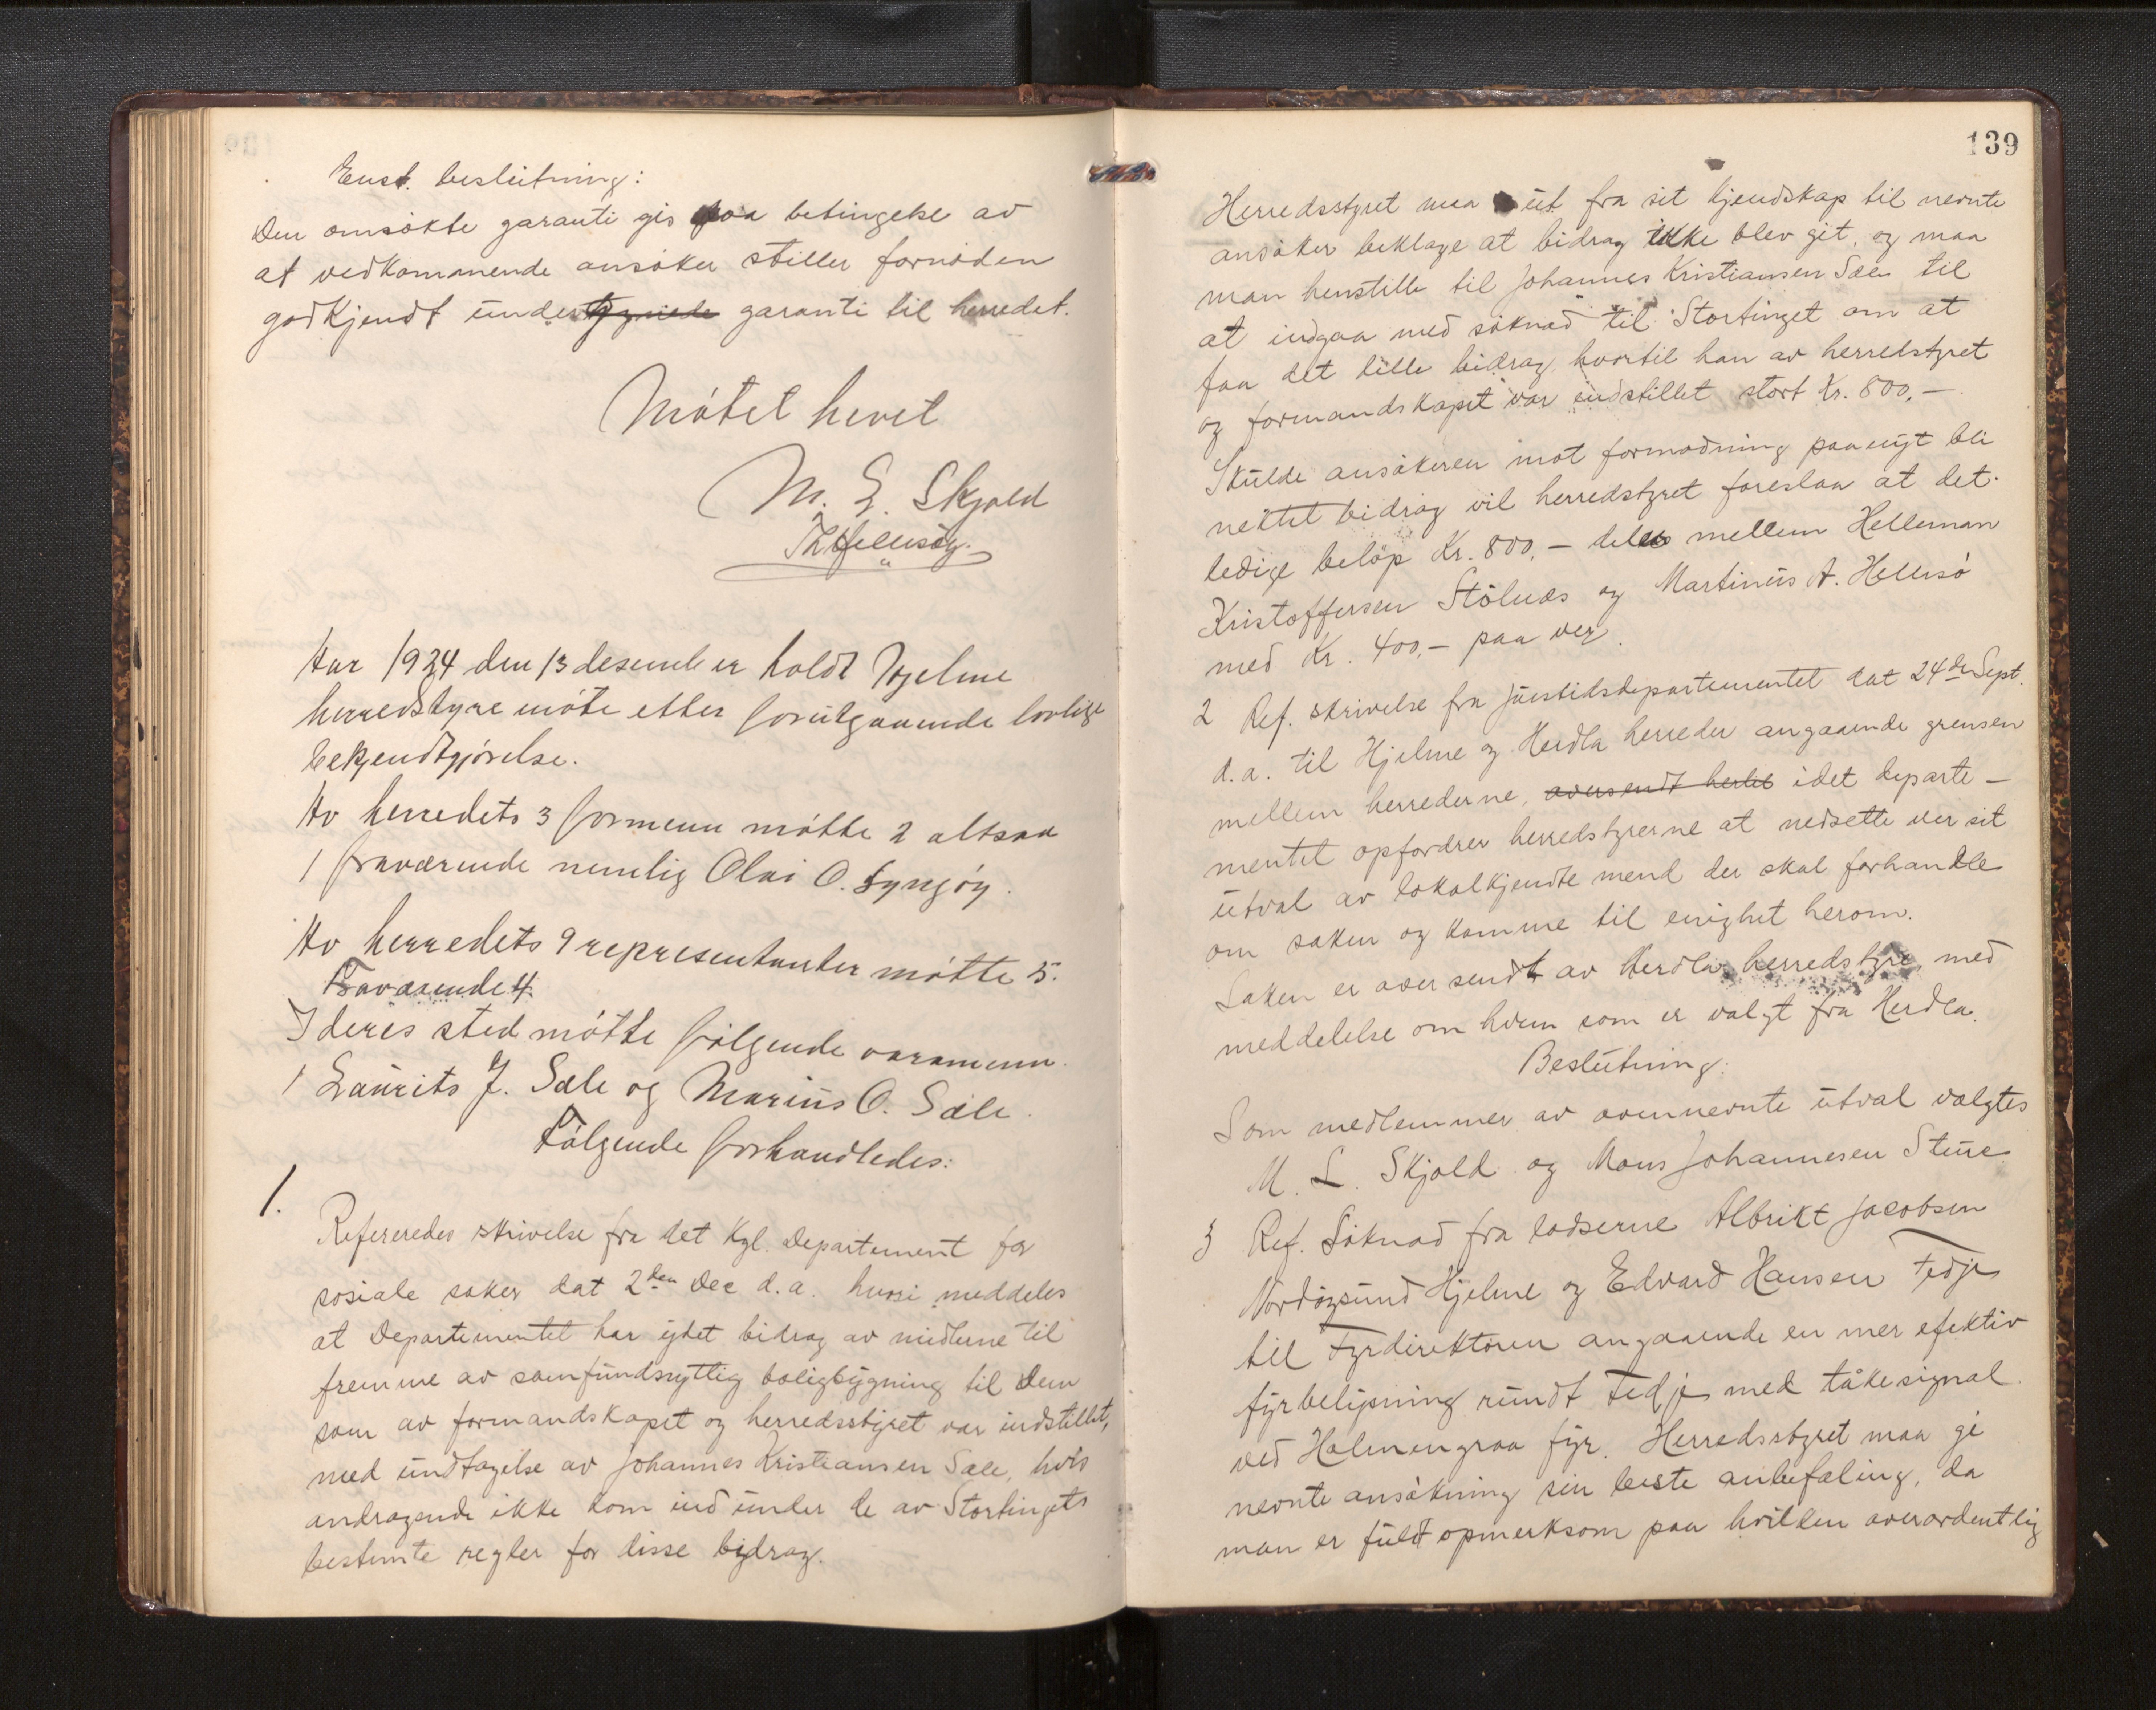 Enst. beslutning:
Den omsøkte garanti gis paa betingelse av
at vedkommende ansøker stiller fornøden
godkjendt under garanti til herredet.
Møtet hevet
M. L. Skjold
Aar 1924 den 13 desember holdt Hjelme
herredstyre møte etter forutgaaende lovlige
bekjendtgjørelse.
Av herredets 3 formenn møtte 2 altsaa
1 fraværende nemlig Olai O. Syngøy.
Av herredets 9 representanter møtte 5.
Fraværende 4.
I deres sted møtte følgende varamenn.
1 Laurits J. Sæle og Marius O. Sæle.
Følgende forhandledes:
1.
Refereredes skrivelse fra det Kgl. Departement for
sosiale saker dat 2den Dec d.a. hvori meddeles
at Departementet har ydet bidrag av midlerne til
fremme av samfundsnyttig boligbygning til dem
som av formandskapet og herredsstyret var indstillet,
med undtagelse av Johannes Kristiansen Sæle, hvis
andragende ikke kom ind under de av Stortingets
bestemte regler for disse bidrag.
139
Herredsstyret maa ut fra sit kjendskap til nevnte
ansøker beklage at bidrag ikke blev git, og maa
man henstille til Johannes Kristiansen Sæle til
at indgaa med søknad til Stortinget om at
faa det lille bidrag, hvortil han av herredstyret
og formandskapet var indstillet stort Kr. 800,-
Skulde ansøkeren mot formodning paa nyt bli
nektet bidrag vil herredstyret foreslaa at det
ledige beløp Kr. 800,- deles mellem Helleman
Kristoffersen Stølnæs og Martinus A. Hellesø
med Kr. 400,- paa ver.
2 Ref. skrivelse fra Justisdepartementet dat 24de Sept.
d.a. til Hjelme og Herdla herreder angaaende grensen
mellem herrederne, oversendt herfet idet departe-
mentet opfordrer herredstyrerne at nedsette ver sit
utval av lokalkjendte mend der skal forhandle
om saken og komme til enighet herom.
Saken er oversendt av Herdla herredstyre, med
meddelelse om hvem som er valgt fra Herdla.
Beslutning:
Som medlemmer av ovennevnte utval valgtes
M. L. Skjold og Mons Johannesen Sture
3 Ref. Søknad fra lodserne Albrikt Jacobsen
Nordøysund Hjelme og Edvard Hansen Fedje
til Fyrdirektøren angaaende en mer efektiv
fyrbelysning rundt Fedje med tåkesignal
ved Holmengraa fyr. Herredsstyret maa gi
nevnte ansøkning sin beste anbefaling, da
man er fuldt opmerksom paa hvilken overordentlig